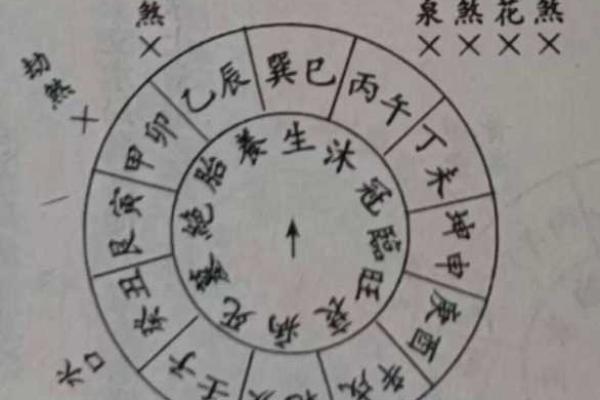 煞
×
泉煞花煞
××××
劫煞
×
乙辰
巽巳
丙午
丁未
坤申
庚酉
辛戌
壬子
癸丑
艮寅
甲卯
養
生
沐
冠
臨
旺
衰
病
死
墓
絕
胎
水口